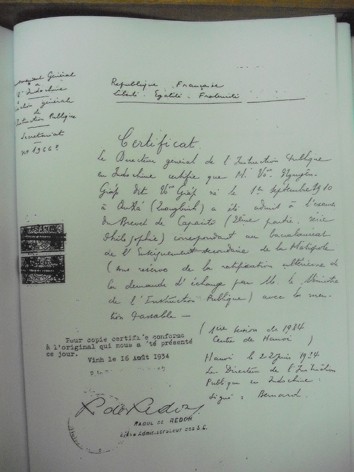 Général
l'Indochine
général
Instruction Publique
Secrétariat
République Française
Liberté - Égalité - Fraternité
Certificat
Le Directeur général de l'Instruction Publique
en Indochine certifie que M. Võ Nguyên
Giáp dit Võ Giáp né le 1er Septembre 1910
à (Quangbinh) a été admis à l'examen
du Brevet de Capacité (2ème partie, série
Philosophie) correspondant au baccalauréat
de l'Enseignement secondaire de la Métropole
(sous réserve de la ratification ultérieure de
la demande d'échange par M. le Ministre
de l'Instruction Publique) avec la men-
tion Passable -
(1ère session de 1934
Centre de Hanoi)
Pour copie certifiée conforme
à l'original qui nous a été présenté
ce jour.
Vinh le 16 Août 1934
Hanoi le 1934
Le Directeur de l'Instruction
Publique en Indochine
signé: Bernard.
RAOUL DE REDON